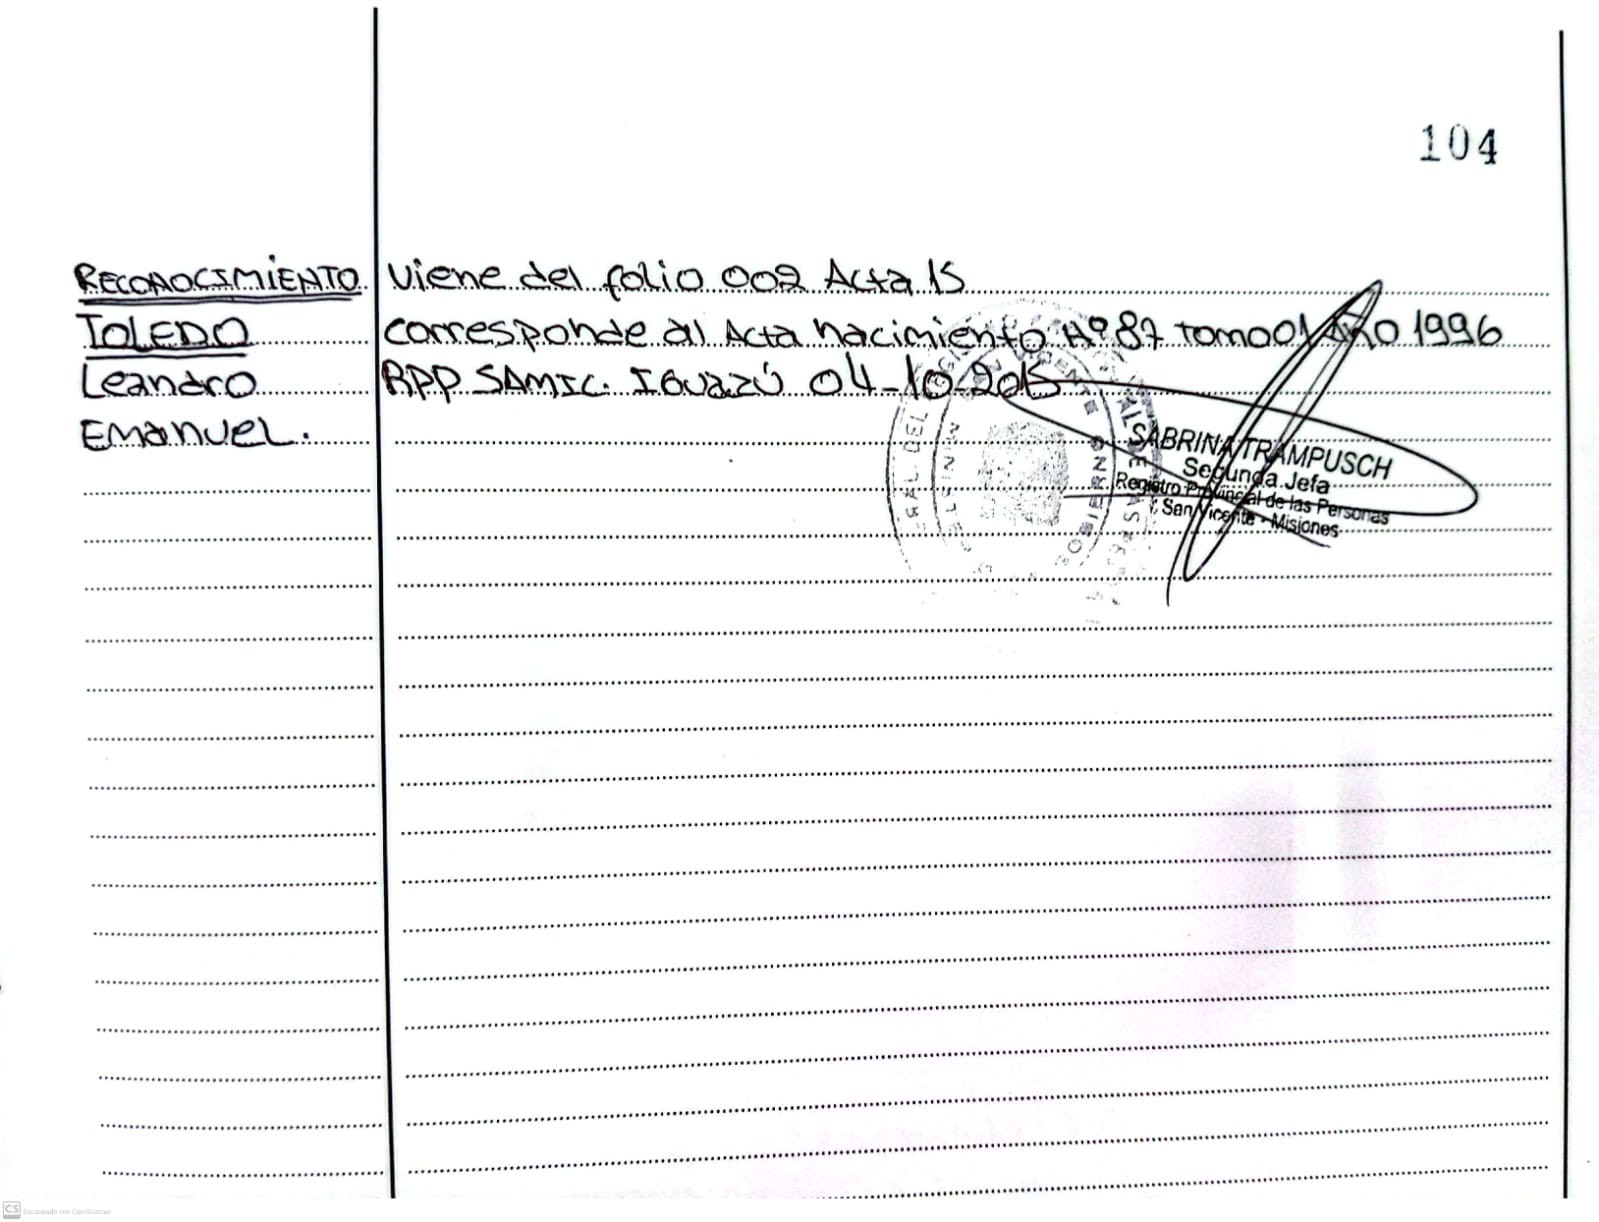 104
RECONOCIMIENTO Viene del folio 002 Acta 15
TOLEDO corresponde al Acta nacimiento Nº 87 Tomo 01 Año 1996
Leandro RPP SAMIC. IGUAZÚ 04-10-2015
EMANUEL.
SABRINA TRAMPUSCH
Segunda Jefa
Registro Provincial de las Personas
San Vicente - Misiones
GOBIERNO
CS Escaneado con CamScanner